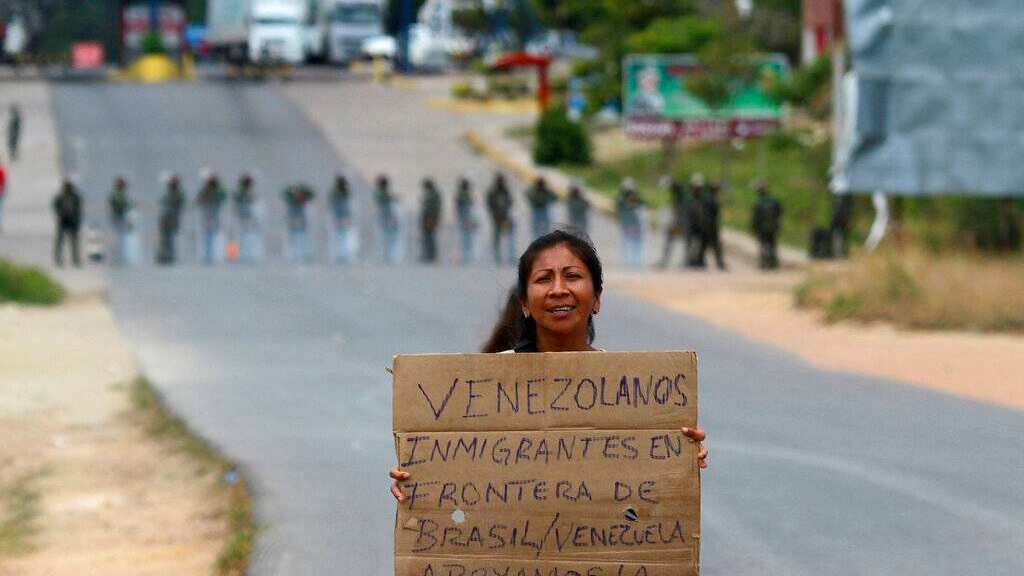 VENEZOLANOS
INMIGRANTES EN
FRONTERA DE
BRASIL/VENEZUELA
APOYAMOS LA